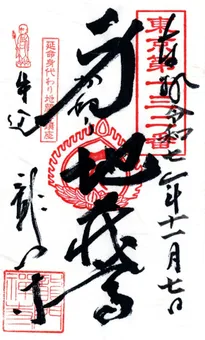 奉拝 令和七年十一月七日
東京第十三番
身代り
地蔵尊
延命身代わり地蔵尊鎮座
牛込
龍門寺